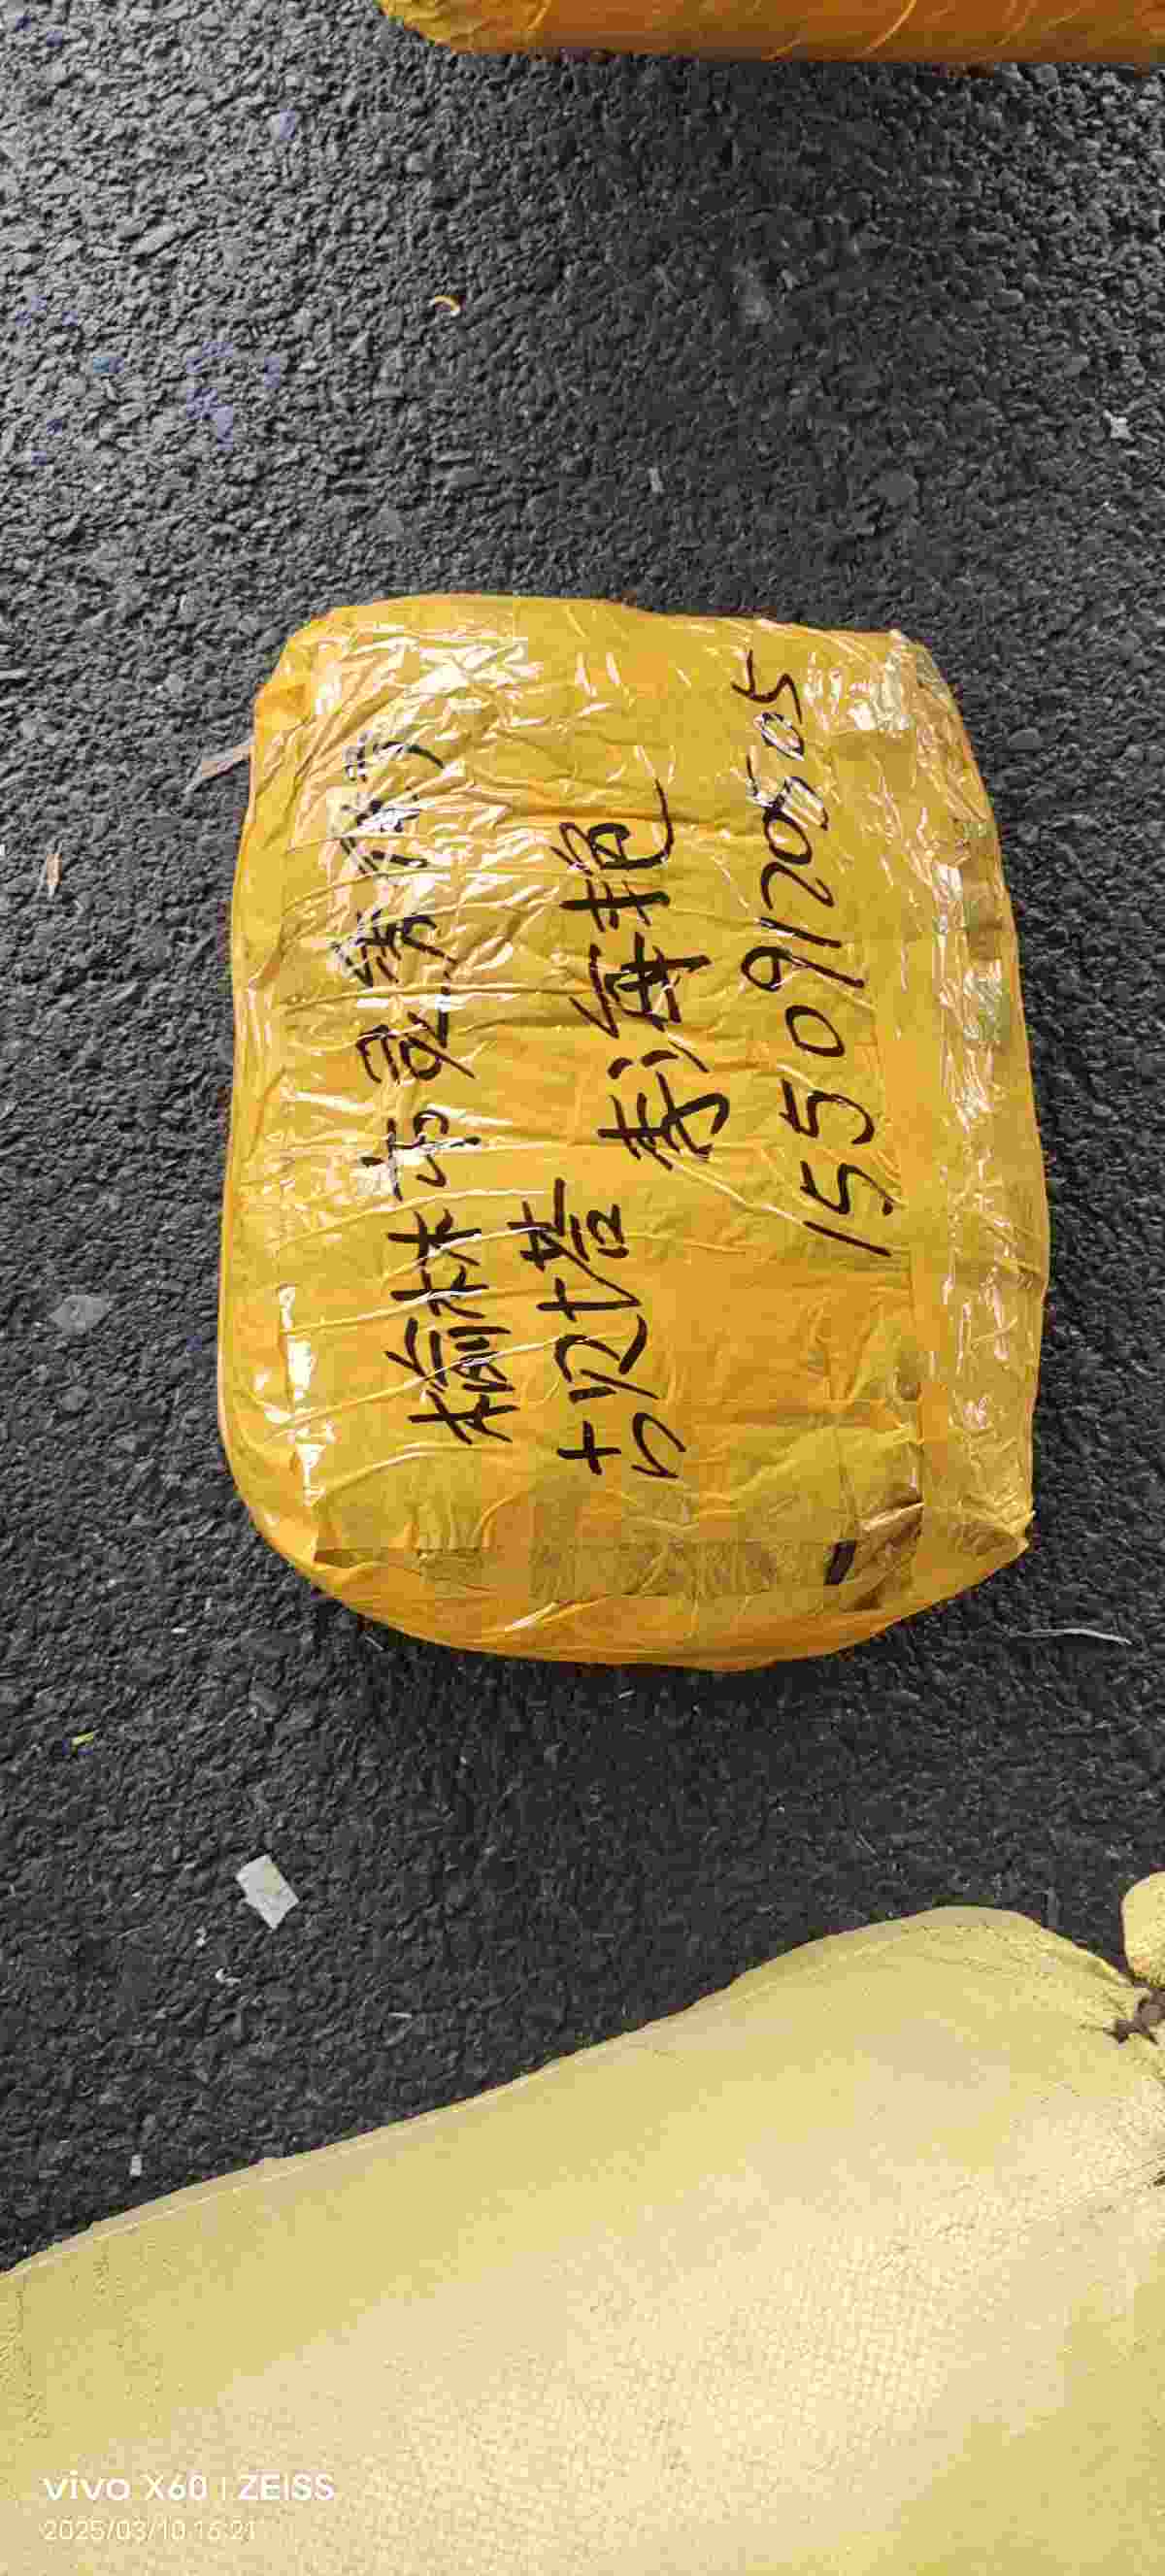 榆林市灵秀
圪垯 李海艳
15509120505
vivo X60 | ZEISS
2025/03/10 16:21